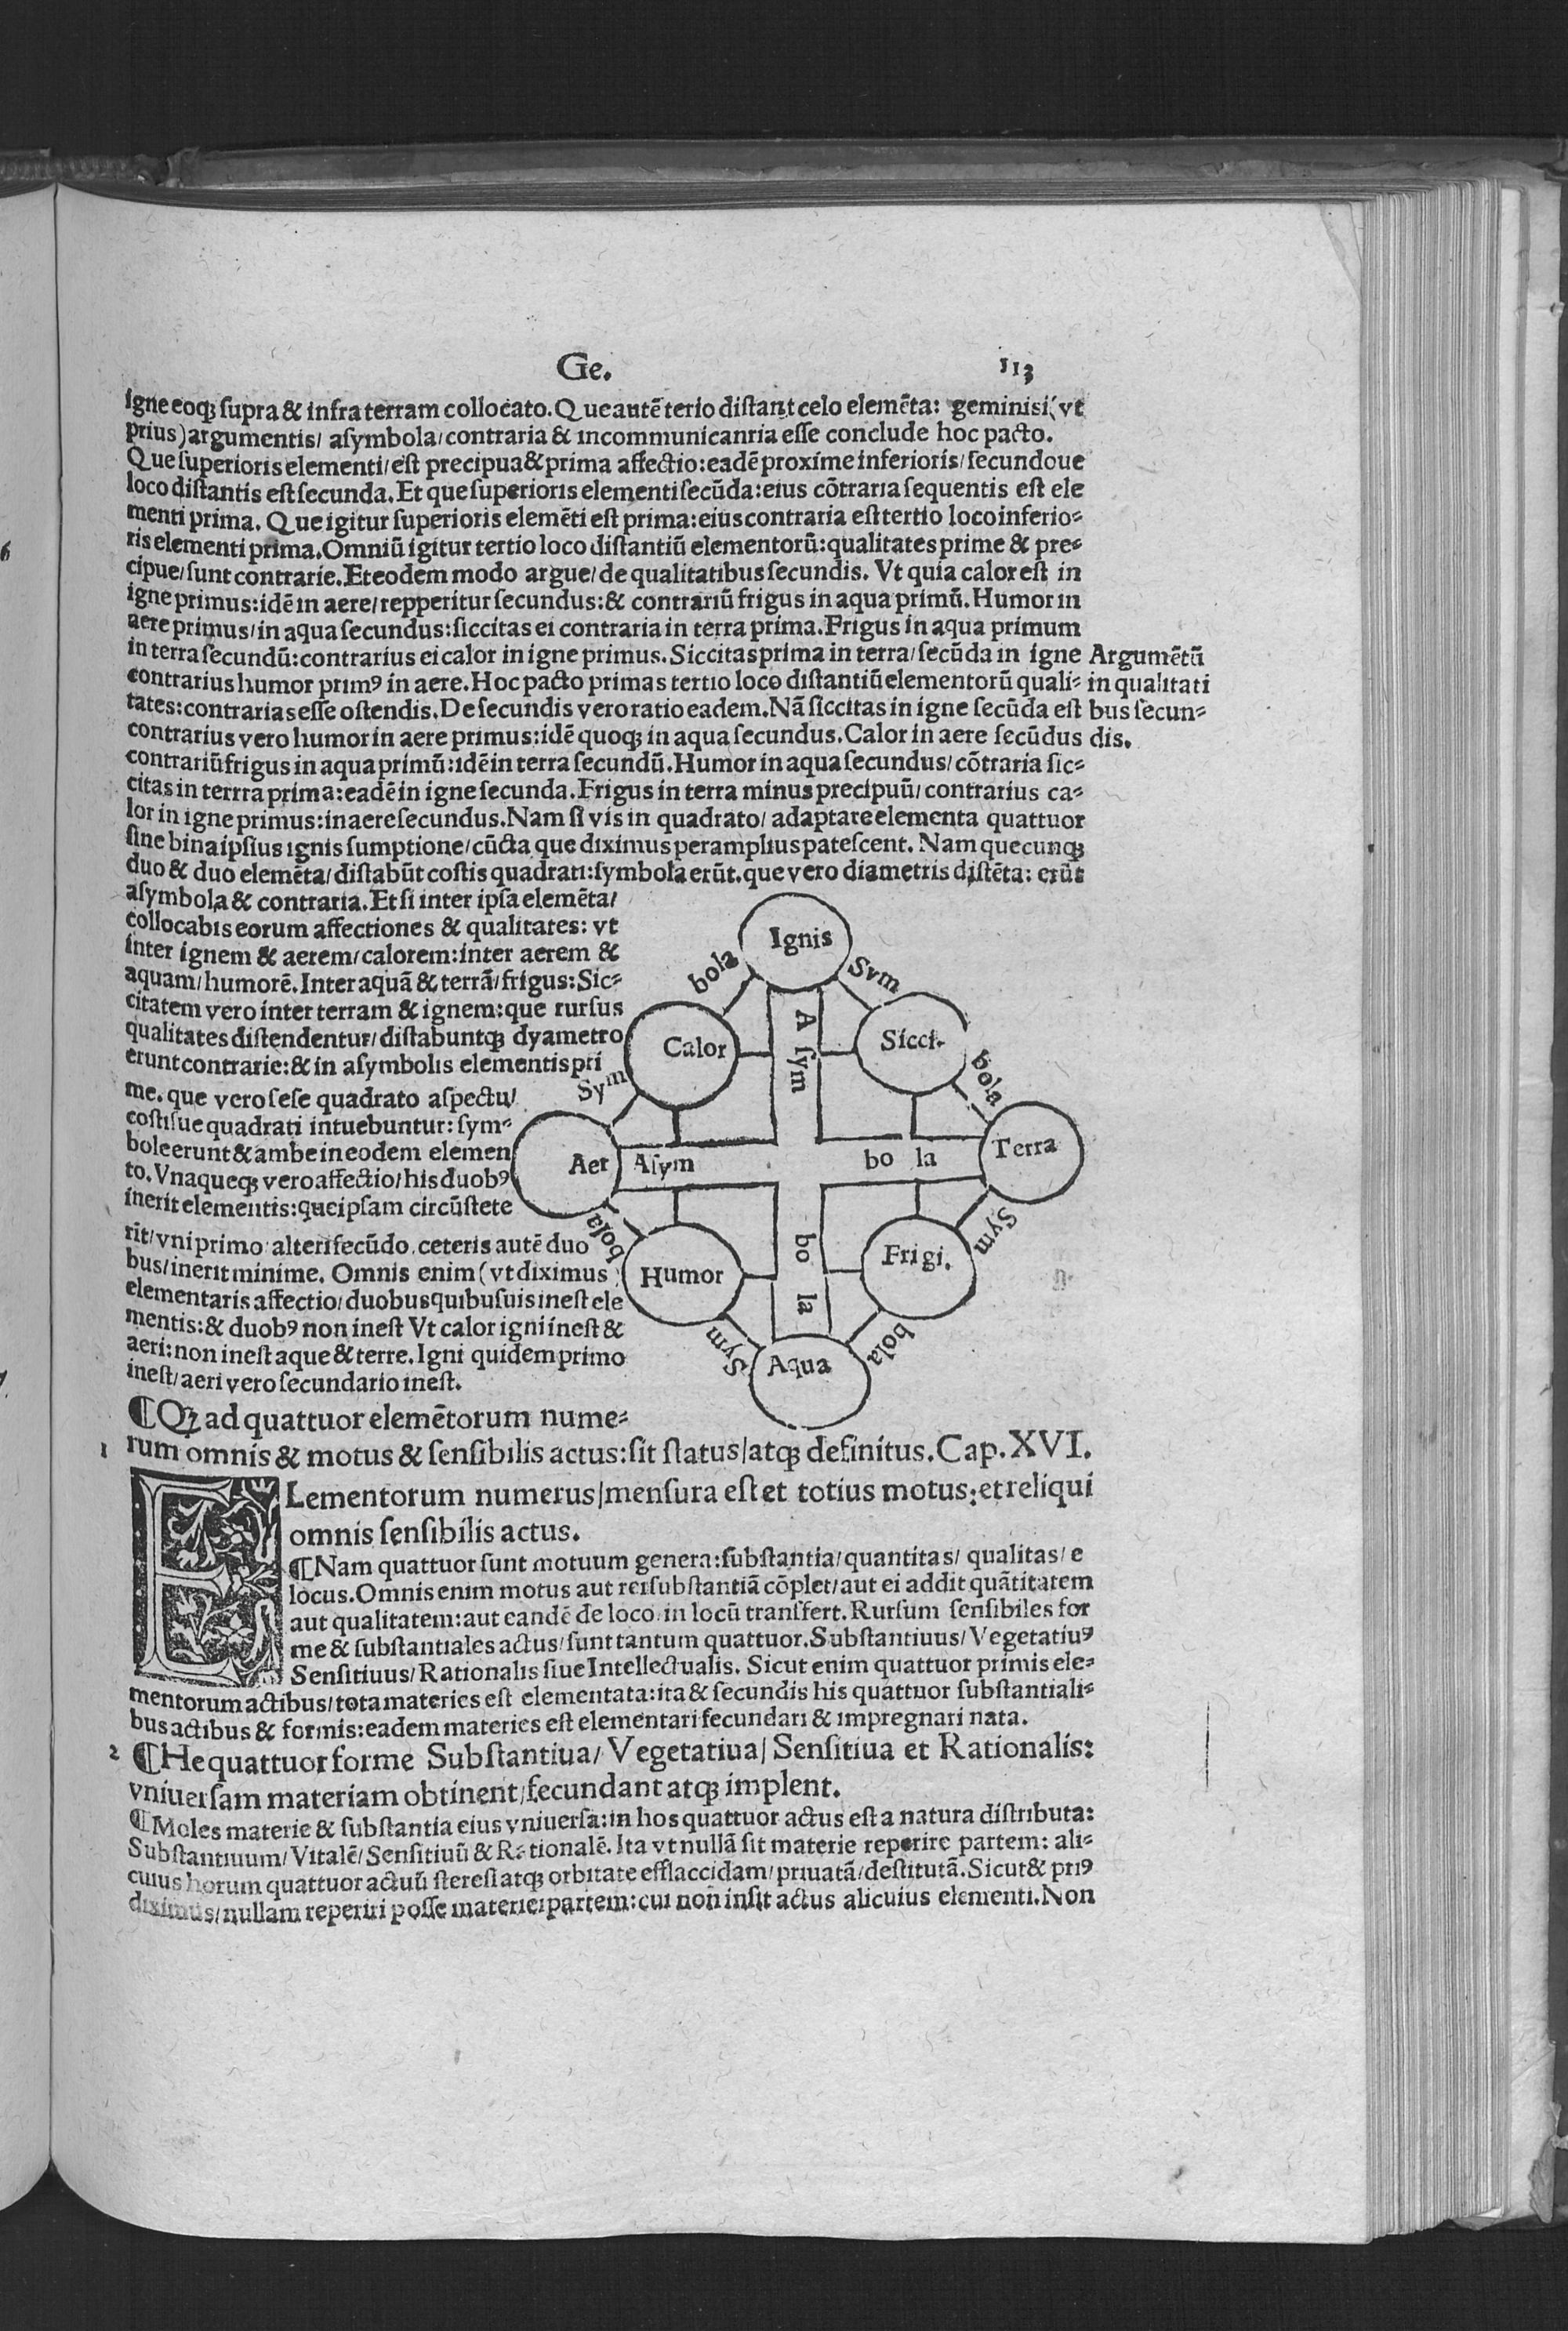 Ge. 113
igne eoqꝫ supra & infra terram collocato. Que autē terio distant celo elemēta: geminis (vt
prius) argumentis/ asymbola/contraria & incommunicanria esse conclude hoc pacto.
Que superioris elementi/est precipua & prima affectio: eadē proxime inferioris/secundoue
loco distantis est secunda. Et que superioris elementi secūda: eius cōtraria sequentis est ele
menti prima. Que igitur superioris elemēti est prima: eius contraria est tertio loco inferio⸗
ris elementi prima. Omniū igitur tertio loco distantiū elementorū: qualitates prime & pre⸗
cipue/sunt contrarie. Et eodem modo argue/de qualitatibus secundis. Vt quia calor est in
igne primus: idē in aere/repperitur secundus: & contrariū frigus in aqua primū. Humor in
aere primus/in aqua secundus: siccitas ei contraria in terra prima. Frigus in aqua primum
in terra secundū: contrarius ei calor in igne primus. Siccitas prima in terra/secūda in igne
contrarius humor primꝰ in aere. Hoc pacto primas tertio loco distantiū elementorū quali⸗
tates: contrarias esse ostendis. De secundis vero ratio eadem. Nā siccitas in igne secūda est
contrarius vero humor in aere primus: idē quoqꝫ in aqua secundus. Calor in aere secūdus
Argumētū
in qualitati
bus secun⸗
dis.
contrariū frigus in aqua primū: idē in terra secundū. Humor in aqua secundus/cōtraria sic⸗
citas in terrra prima: eadē in igne secunda. Frigus in terra minus precipuū/contrarius ca⸗
lor in igne primus: in aere secundus. Nam si vis in quadrato/ adaptare elementa quattuor
sine bina ipsius ignis sumptione/cūcta que diximus peramplius patescent. Nam quecunqꝫ
duo & duo elemēta/distabūt costis quadrati: symbola erūt. que vero diametris distēta: erūt
asymbola & contraria. Et si inter ipsa elemēta/
collocabis eorum affectiones & qualitates: vt
inter ignem & aerem/calorem: inter aerem &
aquam/humorē. Inter aquā & terrā/frigus: Sic⸗
citatem vero inter terram & ignem: que rursus
qualitates distendentur/distabuntqꝫ dyametro
erunt contrarie: & in asymbolis elementis pri
me. que vero sese quadrato aspectu/
costisue quadrati intuebuntur: sym⸗
bole erunt & ambe in eodem elemen
to. Vnaqueqꝫ vero affectio/his duobꝰ
inerit elementis: que ipsam circūstete
rit/vni primo alteri secūdo. ceteris autē duo
bus/inerit minime. Omnis enim (vt diximus)
elementaris affectio/duobus quibusuis inest ele
mentis: & duobꝰ non inest Vt calor igni inest &
aeri: non inest aque & terre. Igni quidem primo
inest/aeri vero secundario inest.
Ignis
bola
Sym
Calor
A sym
Sicci.
Sym
bola
Aer
Asym
bo la
Terra
bola
Sym
Humor
bo
la
Frigi.
Sym
bola
Aqua
¶ Qꝫ ad quattuor elemētorum nume⸗
1 rum omnis & motus & sensibilis actus: sit status/atqꝫ definitus. Cap. XVI.
ELementorum numerus/mensura est et totius motus: et reliqui
omnis sensibilis actus.
¶ Nam quattuor sunt motuum genera: substantia/quantitas/ qualitas/ e
locus. Omnis enim motus aut rei substantiā cōplet/aut ei addit quātitatem
aut qualitatem: aut eandē de loco in locū transfert. Rursum sensibiles for
me & substantiales actus/sunt tantum quattuor. Substantiuus/Vegetatiuꝰ
Sensitiuus/Rationalis siue Intellectualis. Sicut enim quattuor primis ele⸗
mentorum actibus/tota materies est elementata: ita & secundis his quattuor substantiali⸗
bus actibus & formis: eadem materies est elementari fecundari & impregnari nata.
2 ¶ He quattuor forme Substantiua/Vegetatiua/Sensitiua et Rationalis:
vniuersam materiam obtinent/fecundant atqꝫ implent.
¶ Moles materie & substantia eius vniuersa: in hos quattuor actus est a natura distributa:
Substantiuum/Vitalē/Sensitiuū & Rationalē. Ita vt nullā sit materie reperire partem: ali⸗
cuius horum quattuor actuū steresi atqꝫ orbitate efflaccidam/priuatā/destitutā. Sicut & priꝰ
diximus/nullam reperiri posse materiei partem: cui non insit actus alicuius elementi. Non